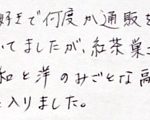 好きで何度か通販を
いてましたが、紅茶巣
和と洋のみごとな高
に入りました。